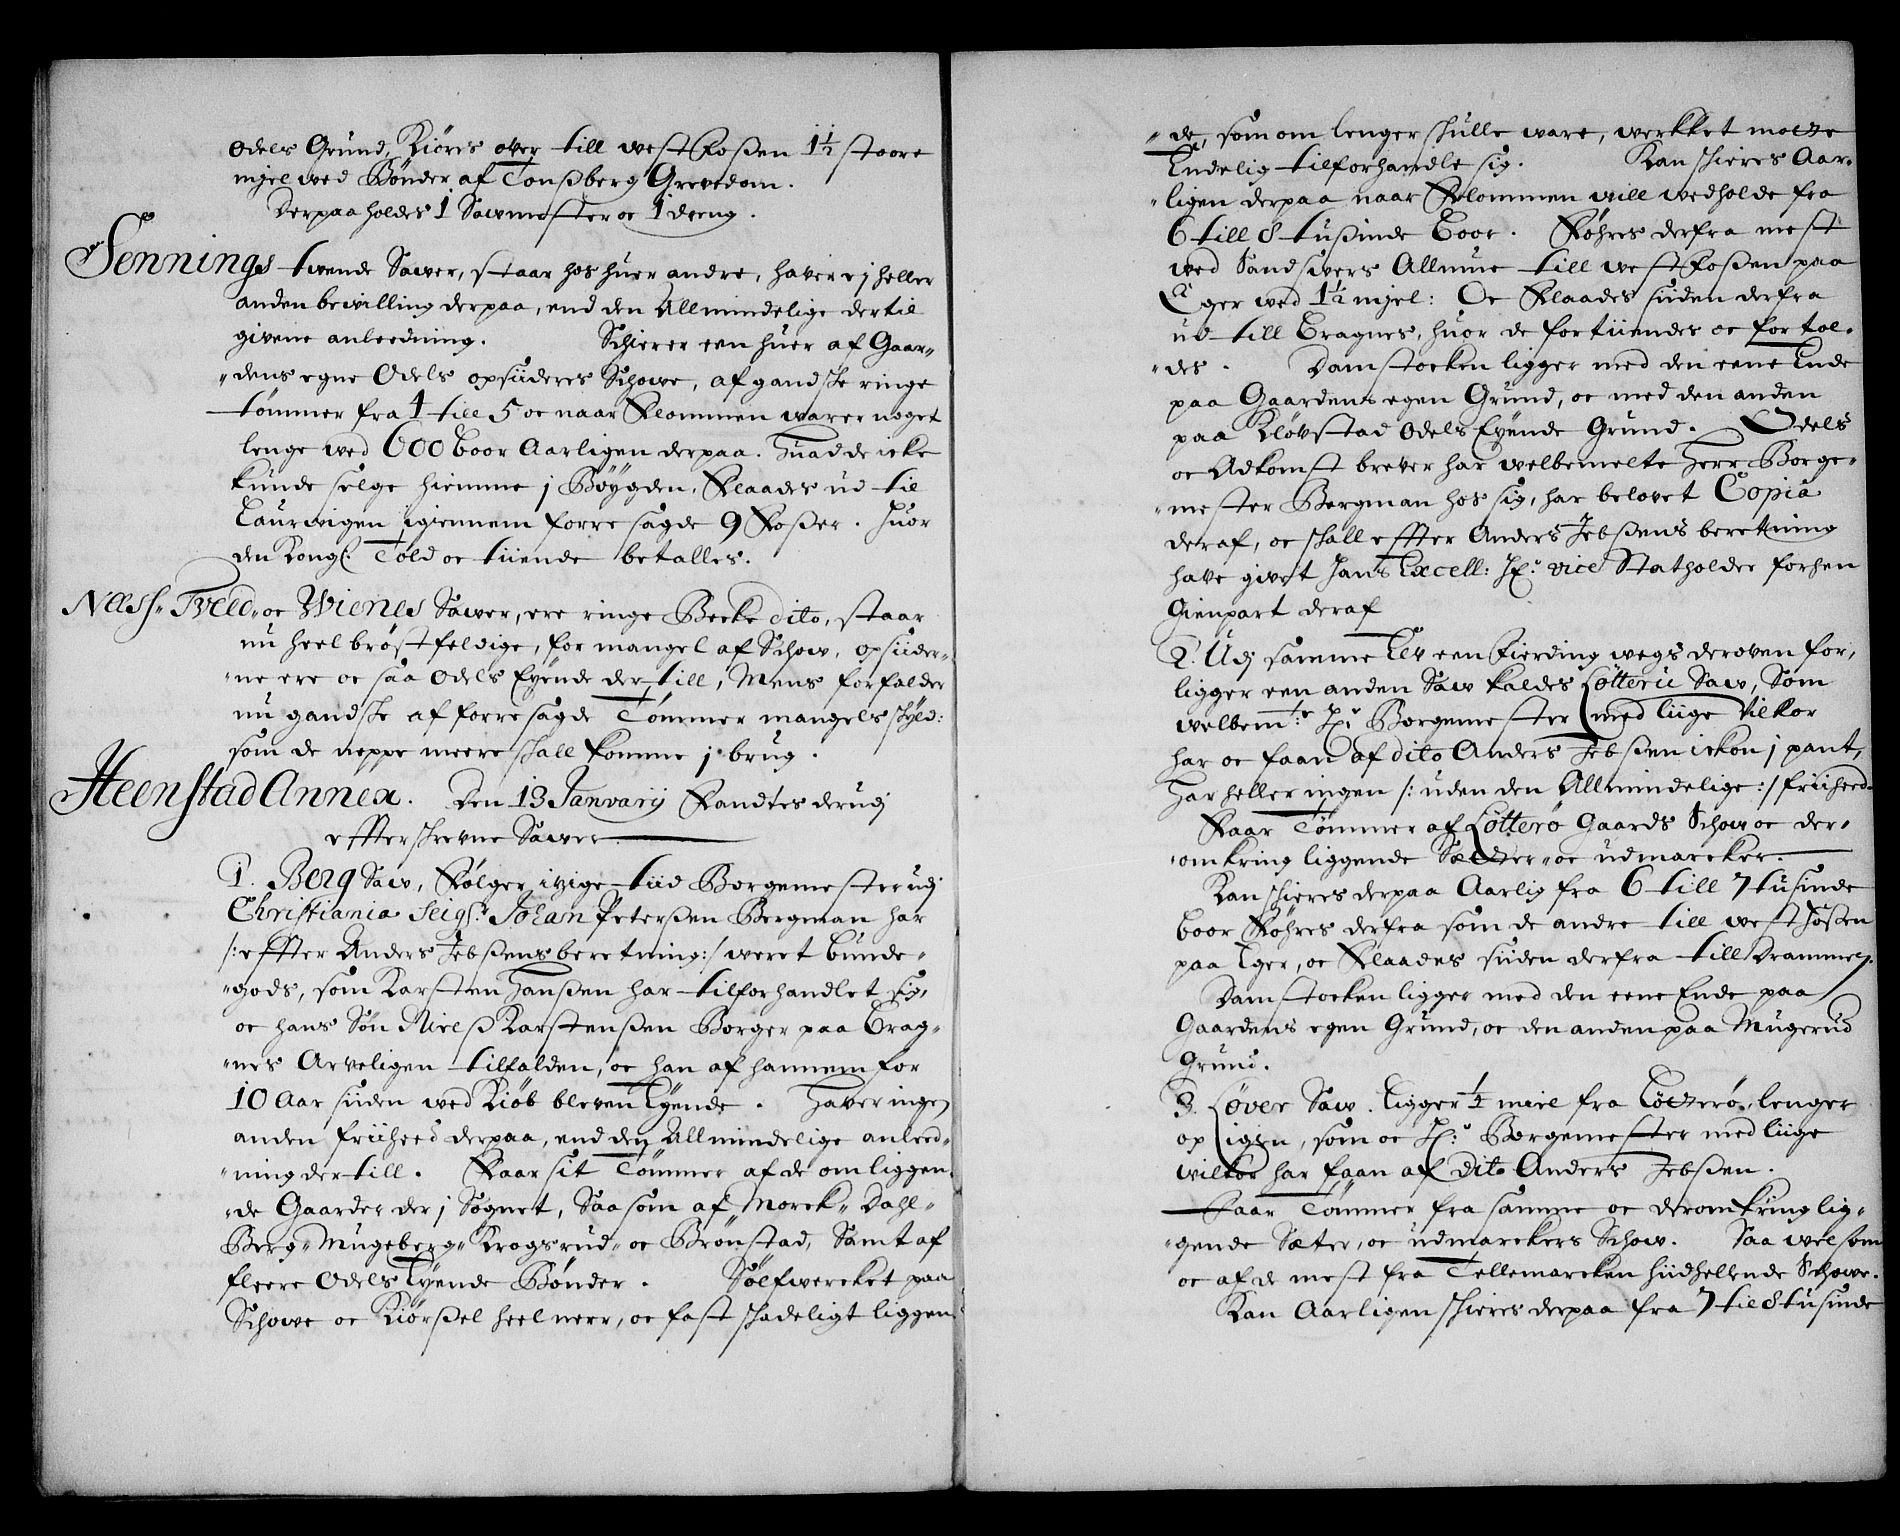 Odels Grund, Kiöres over till westFossen 1½ stoore
mjel wed Bönder af Tonsberg Grevedom.
Derpaa holdes 1 Sawmester oc 1 dreng.
Jennings twende Sawer, staar hos huer andre, haver ej heller
anden bewilling derpaa, end den Allmindelige dertil
givene anleedning. Schierer een huer af Gaar-
dens egne Odels opsiideres Schowe, af gandske ringe
tømmer fra 4 till 5 oc naar Flommen warer noget
lenge ved 600 boor Aarligen derpaa. Huad de icke
kunde selge hiemme j Bøygden, Flaades ud til
Laurwigen igiennem forresagde 9 Fosser. Huor
den Kongl: Told oc tiiende betalles.
Næss- Tveed- oc Wienes Sawer, ere ringe Becke dito, staar
nu heel brøstfeldige, for mangel af Schow, opsiider-
ne ere oc saa Odels Eyende der till, Mens forfalder
nu gandske af forresagde Tømmer mangels skyld:
som de neppe meere skall komme j brug.
Heenstad Annex. Den 13 Janvarij Fandtes derudj
effterskrevne Sawer
1. Berg Saw, Følger itzige tiid Borgemester udj
Christiania Seigr. Johan Peterssen Bergman har
/: effter Anders Jebssens beretning :/ weret Bunde-
gods, som Karsten Hanssen har tilforhandlet sig,
oc hans Søn Nielss Karstenssen Borger paa Brag-
nes Arveligen tilfalden, oc han af hannem for
10 Aar siiden wed Kiöb bleven Eyende. Haver ingen
anden friiheed derpaa, end den Allmindelige anleed-
ning der till. Faar sit Tømmer af de omliggen-
de Gaarder der j Sognet, Saasom af Morck- Dahl-
Berg- Mugeberg- Krogsrud- oc Brønstad, Samt af
fleere Odels Eyende Bønder. Sölfwercket paa
Schowe oc Kiørssel heel nerr, oc fast skadeligt liggen-
de, som om lenger skulle ware, werkket motte
Endelig tilforhandle sig. Kan skieres Aar-
ligen derpaa naar Flommen will wedholde fra
6 till 8 tussinde Boor. Føhres derfra mest
wed Sandswers Allmue till westFossen paa
Eger wed 1½ mjel: Oc Flaades siiden derfra
ud till Bragnes, huor de fortiiendes oc fortol-
des. Damstocken ligger med den eene Ende
paa Gaardens egen Grund, oc med den anden
paa Kløvstad Odels Eyende Grund. Odels
oc Adkomst brever har welbemelte Herr Borge-
mester Bergman hos sig, har belovet Copia
deraf, oc skall effter Anders Jebssens beretning
have givet Hans Excell: Hr: vice Statholder forhen
Gienpart deraf
2. Udj samme Elv een Fierding wegs deroven for,
ligger een anden Saw kaldes Lötterii Saw, Som
welbemte: Hr: Borgemester med liige Vilkor
har oc faan af dito Anders Jebssen ickon j pant,
Har heller ingen /: uden den Allmindelige :/ friiheed-
Faar Tømmer af Lötterø Gaards Schow oc der-
omkring liggende Sætter- oc udmarcker.
Kan skieres derpaa Aarlig fra 6 till 7 tusinde
boor Føhres derfra som de andre till westFossen
paa Eger, oc Flaades siiden derfra till Drammen.
Damstocken ligger med den eene Ende paa
Gaardens egen Grund, oc den anden paa Mugerud
Grund.
3. Löver Saw. ligger ½ miel fra Lötterø, lenger
op igien, som oc Hr: Borgemester med liige
wilkor har faan af dito Anders Jebssen.
Faar Tømmer fra samme oc deromkring lig-
gende Sæter, oc udmarckers Schow. Saa welsom
oc af de mest fra Tellemarcken hiidhellende Schowe.
Kan Aarligen skieres derpaa fra 7 til 8 tusinde